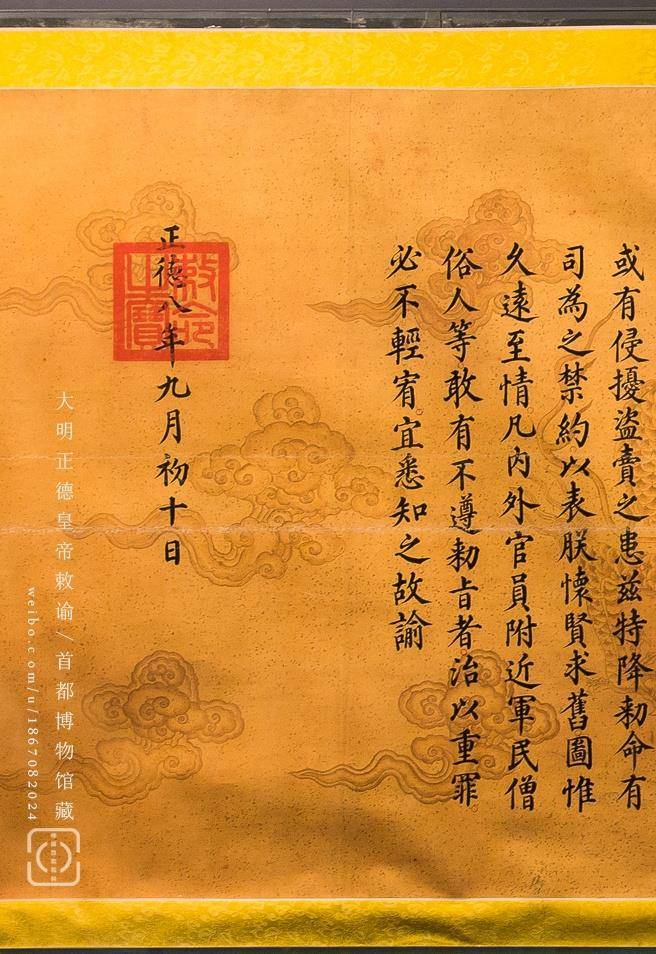 或有侵擾盜賣之患茲特降勑命有
司為之禁約以表朕懷賢求舊圖惟
久遠至情凡內外官員附近軍民僧
俗人等敢有不遵勑旨者治以重罪
必不輕宥宜悉知之故諭
正德八年九月初十日
敕命之寶
大明正德皇帝敕谕/首都博物馆藏
weibo.com/u/1867082024